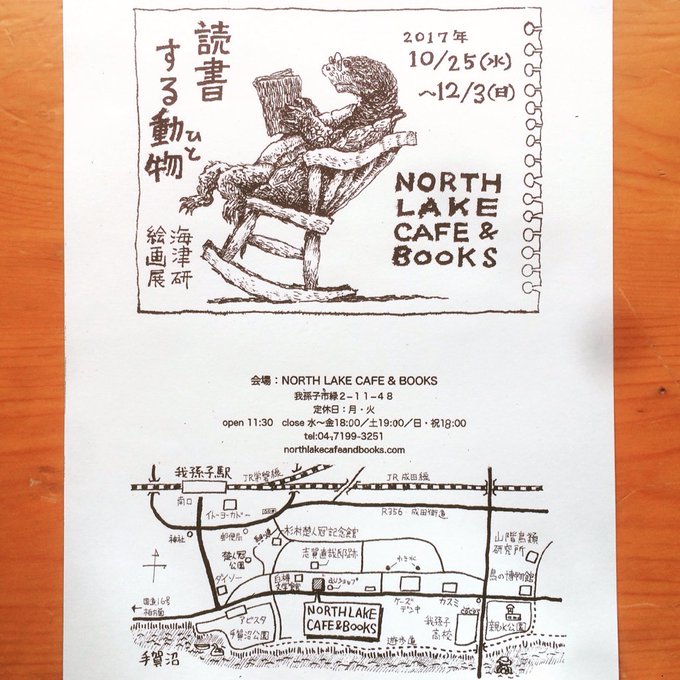 読書
する動物
ひと
海津研
絵画展
2017年
10/25(水)
～12/3(日)
NORTH
LAKE
CAFE &
BOOKS
会場：NORTH LAKE CAFE & BOOKS
我孫子市緑２−１１−４８
定休日：月・火
open 11:30　close 水〜金18:00／土19:00／日・祝18:00
tel:04-7199-3251
northlakecafeandbooks.com
我孫子駅
JR常磐線
JR成田線
南口
イトーヨーカドー
R356 成田街道
神社
郵便局
杉村楚人冠記念館
山階鳥類
研究所
楚人冠
公園
志賀直哉邸跡
鳥の博物館
ダイソー
白樺
文学館
ケーズ
デンキ
カスミ
国道16号
アビスタ
手賀沼公園
NORTH LAKE
CAFE&BOOKS
我孫子
高校
親水公園
手賀沼
遊歩道